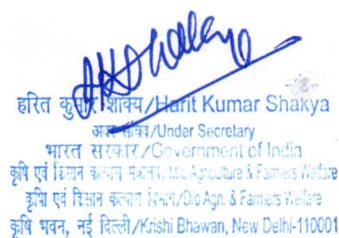 हरित कुमार शाक्य/Harit Kumar Shakya
अवर सचिव/Under Secretary
भारत सरकार/Government of India
कृषि एवं किसान कल्याण मंत्रालय, M/o Agriculture & Farmers Welfare
कृषि एवं किसान कल्याण विभाग/D/o Agn. & Farmers Welfare
कृषि भवन, नई दिल्ली/Krishi Bhawan, New Delhi-110001